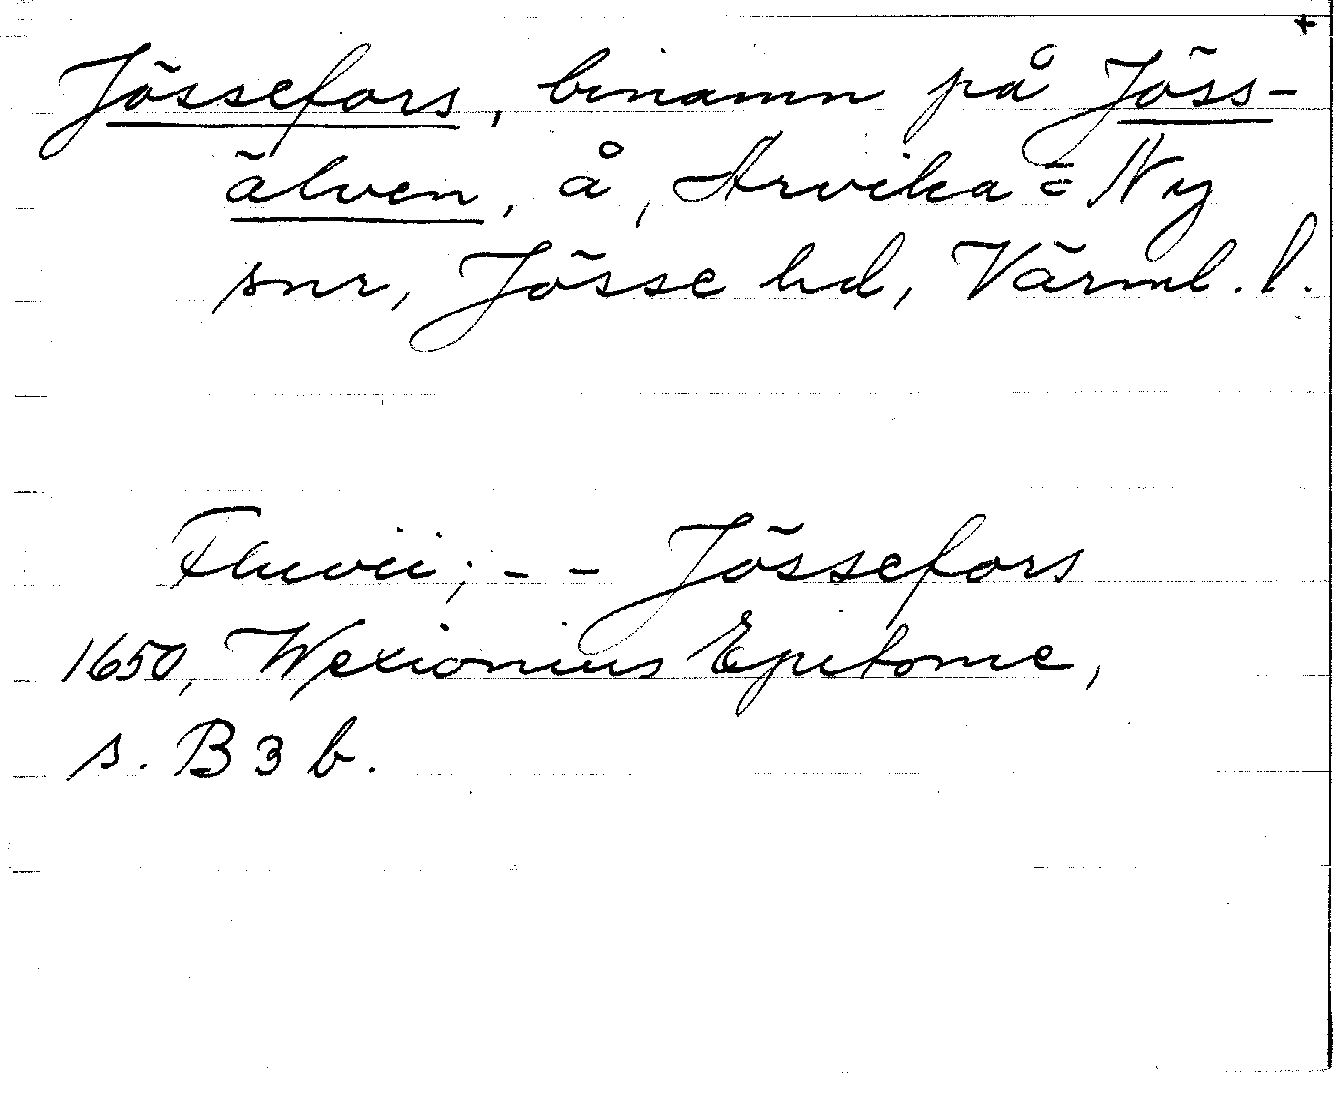 +
Jössefors, binamn på Jöss-
älven, å, Arvika = Ny
snr, Jösse hd, Värml. l.
Fluvii; - - Jössefors
1650, Wexionius Epitome,
s. B 3 b.